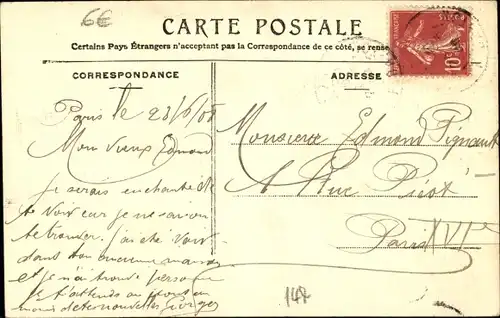 6€
CARTE POSTALE
Certains Pays Étrangers n'acceptant pas la Correspondance de ce côté, se rense
CORRESPONDANCE
ADRESSE
10c
Paris le 23/6/08
Mon vieux Edmond
je serais enchanté de
te voir car je ne sais où
te trouver. j'ai été voir
dans ton
et je n'ai trouvé personne
je t'attends au
de tes nouvelles Georges
Monsieur Edmond Pignault
4 Rue Picot
Paris XVIe
148